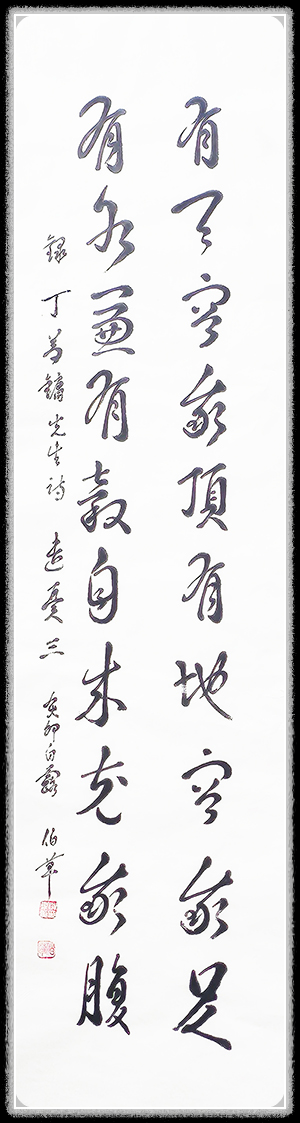 有天容我頂有地容我足
有水兼有穀自來充我腹
錄丁若鏞先生詩 遣憂三 癸卯白露 伯